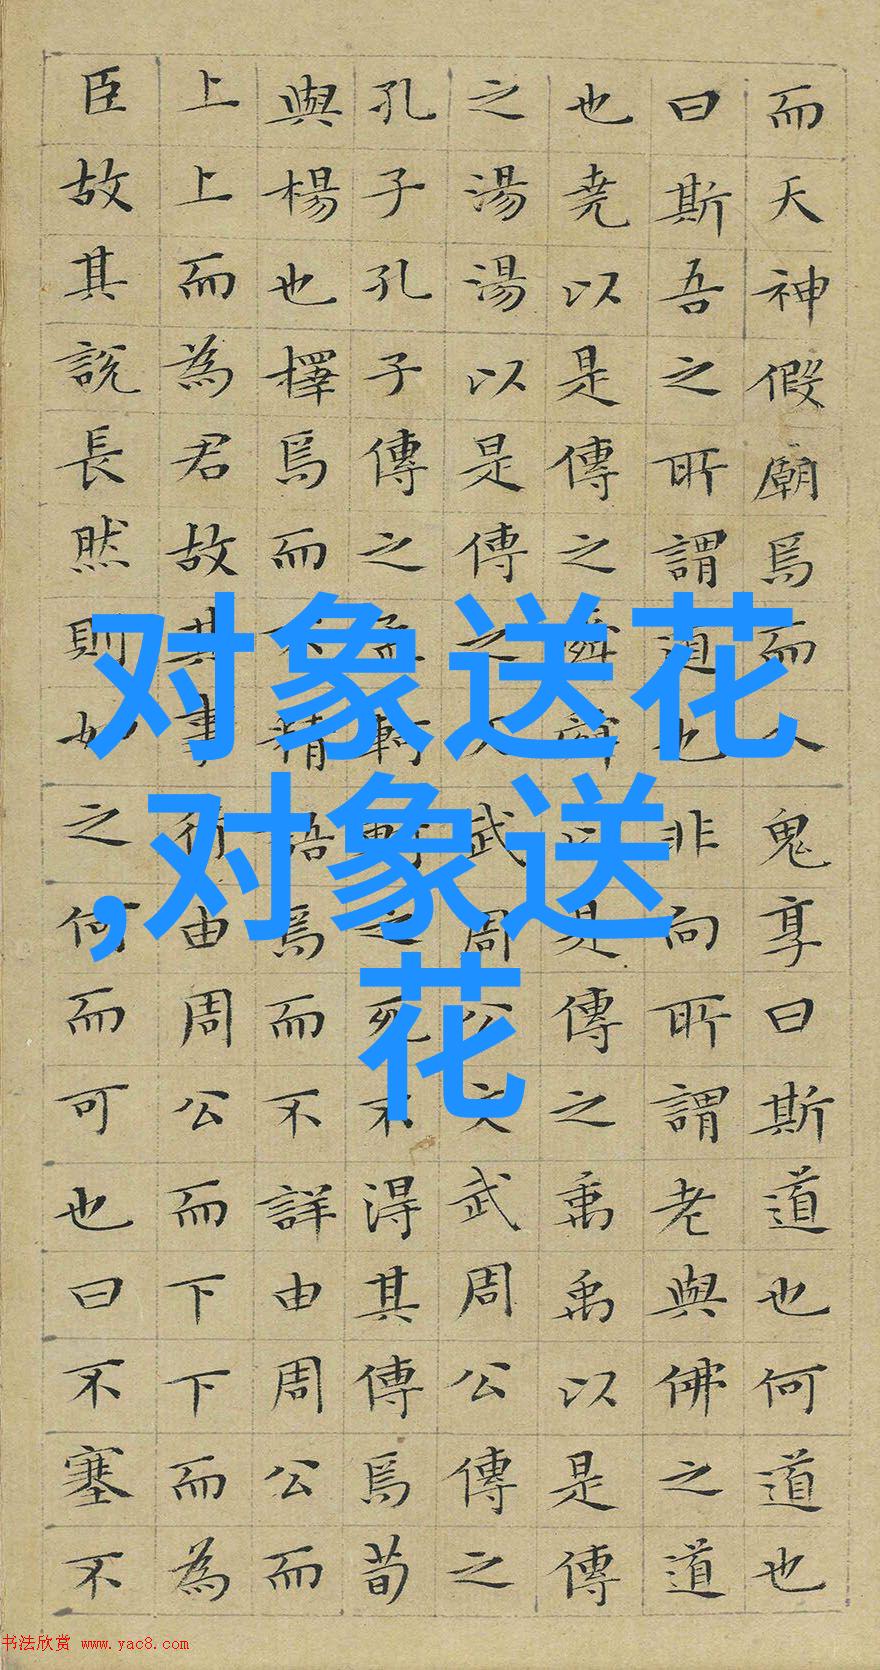 而天神假廟焉而人鬼享曰斯道也何道也
曰斯吾之所謂道也非向所謂老與佛之道
也堯以是傳之舜舜以是傳之禹禹以是傳
之湯湯以是傳之文武周公文武周公傳之
孔子孔子傳之孟軻軻之死不得其傳焉荀
與楊也擇焉而不精語焉而不詳由周公而
上上而為君故其事行由周公而下下而為
臣故其說長然則如之何而可也曰不塞不
对象送花
,对象送
花
书法欣赏 www.yac8.com